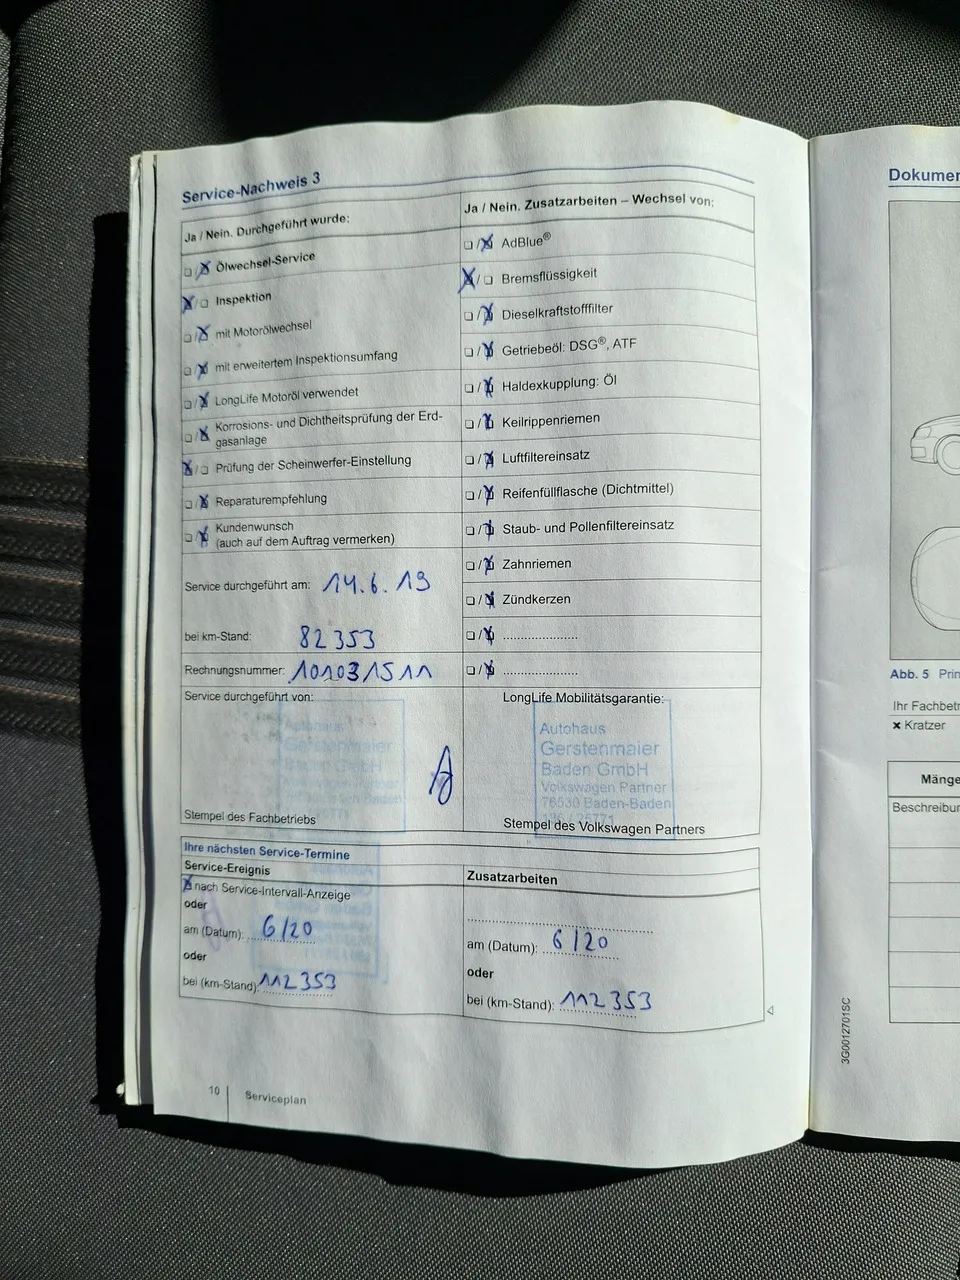 Service-Nachweis 3
Ja / Nein. Durchgeführt wurde:
❏/☒ Ölwechsel-Service
☒/❏ Inspektion
❏/☒ mit Motorölwechsel
❏/☒ mit erweitertem Inspektionsumfang
❏/☒ LongLife Motoröl verwendet
❏/☒ Korrosions- und Dichtheitsprüfung der Erd-
gasanlage
☒/❏ Prüfung der Scheinwerfer-Einstellung
❏/☒ Reparaturempfehlung
❏/☒ Kundenwunsch
(auch auf dem Auftrag vermerken)
Service durchgeführt am: 14.6.19
bei km-Stand: 82353
Rechnungsnummer: 1010031511
Service durchgeführt von:
Autohaus
Gerstenmaier
Baden GmbH
Volkswagen Partner
Stempel des Fachbetriebs
Ja / Nein. Zusatzarbeiten – Wechsel von:
❏/☒ AdBlue®
☒/❏ Bremsflüssigkeit
❏/☒ Dieselkraftstofffilter
❏/☒ Getriebeöl: DSG®, ATF
❏/☒ Haldexkupplung: Öl
❏/☒ Keilrippenriemen
❏/☒ Luftfiltereinsatz
❏/☒ Reifenfüllflasche (Dichtmittel)
❏/☒ Staub- und Pollenfiltereinsatz
❏/☒ Zahnriemen
❏/☒ Zündkerzen
❏/☒ ......................
❏/☒ ......................
LongLife Mobilitätsgarantie:
Autohaus
Gerstenmaier
Baden GmbH
Volkswagen Partner
76530 Baden-Baden
Stempel des Volkswagen Partners
Ihre nächsten Service-Termine
Service-Ereignis
☒ nach Service-Intervall-Anzeige
oder
am (Datum): 6/20
oder
bei (km-Stand): 112353
Zusatzarbeiten
am (Datum): 6/20
oder
bei (km-Stand): 112353
10 Serviceplan
3G0012701SC
Dokumen
Abb. 5 Prin
Ihr Fachbetr
✖ Kratzer
Mänge
Beschreibur